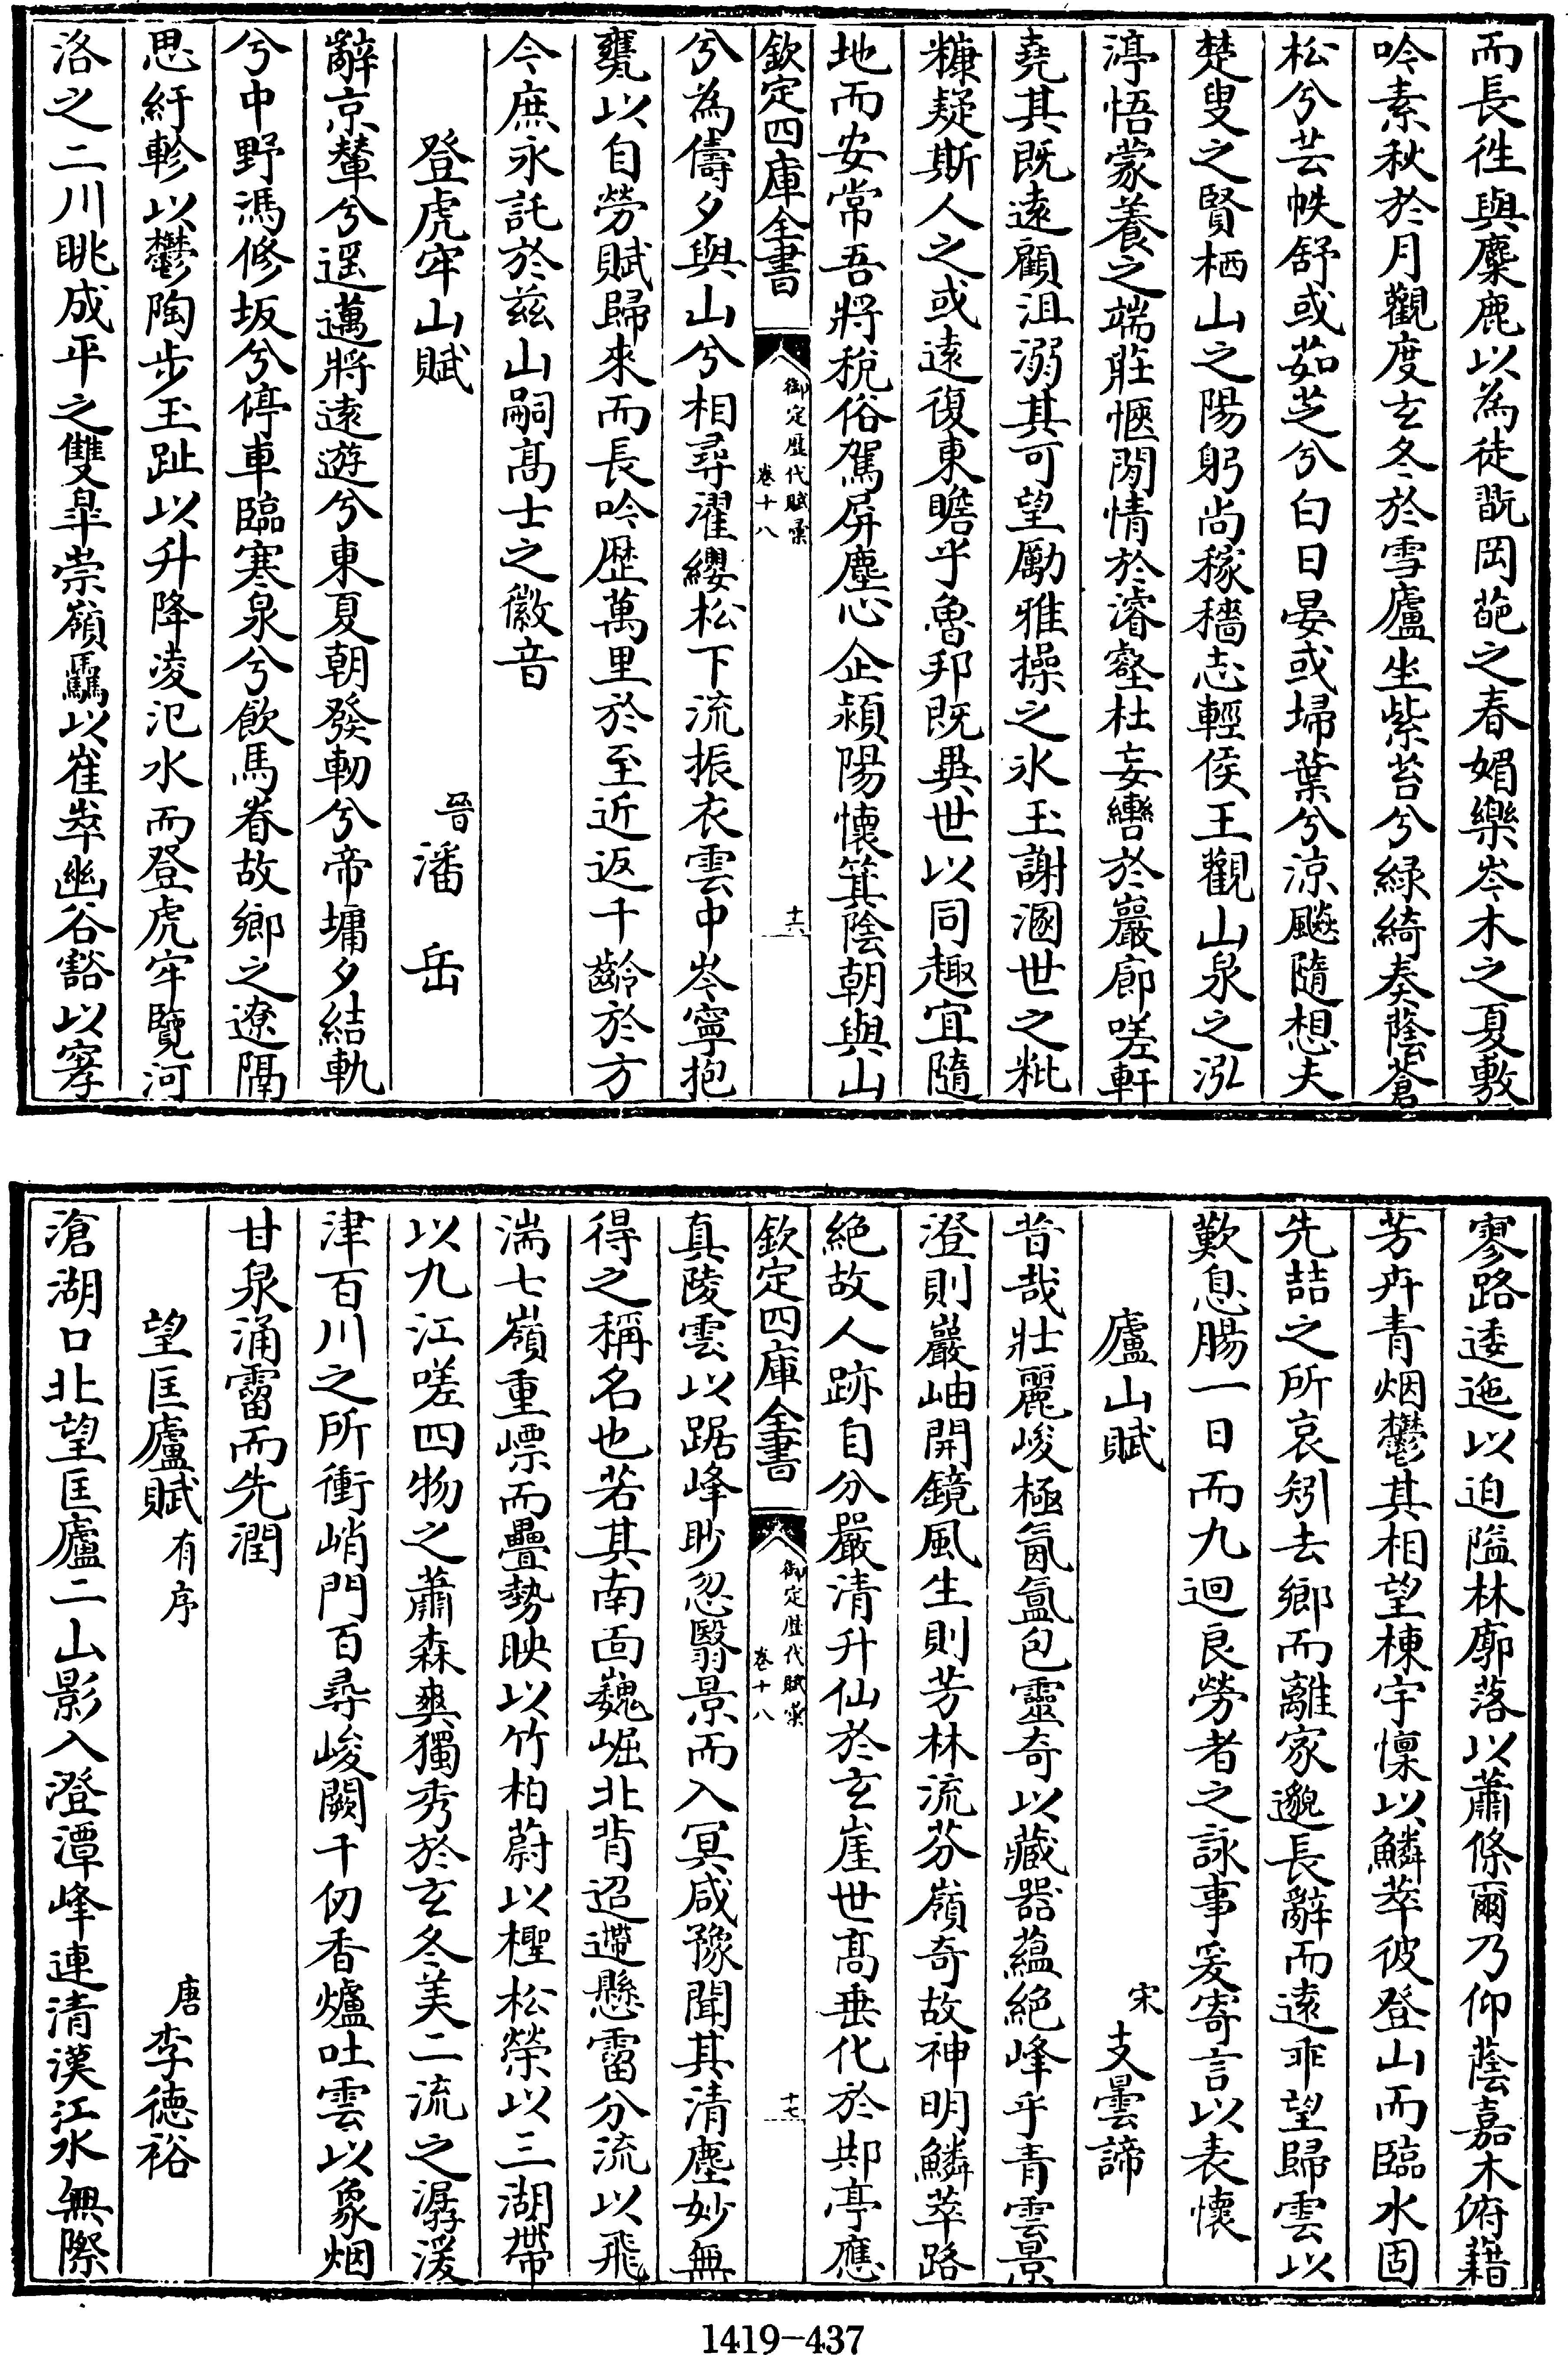 而長徃與麋鹿以為徒翫岡葩之春媚樂岑木之夏敷
吟素秋於月觀度玄冬於雪廬坐紫苔兮緑綺奏蔭蒼
松兮芸帙舒或茹芝兮白日晏或埽葉兮凉飈隨想夫
楚叟之賢栖山之陽躬尚稼穡志輕侯王觀山泉之泓
渟悟蒙養之端莊愜閒情於濬壑杜妄轡於巖廊嗟軒
堯其既逺顧沮溺其可望勵雅操之氷玉謝溷世之粃
糠疑斯人之或逺復東瞻乎魯邦既異世以同趣宜隨
地而安常吾將稅俗駕屏塵心企潁陽懷箕陰朝與山
欽定四庫全書
御定歴代賦彙
卷十八
十六
兮為儔夕與山兮相尋濯纓松下流振衣雲中岑寧抱
甕以自勞賦歸來而長吟歴萬里於至近返千齡於方
今庶永託於兹山嗣髙士之徽音
登虎牢山賦
晉潘岳
辭京輦兮遥邁將逺遊兮東夏朝發軔兮帝墉夕結軌
兮中野馮修坂兮停車臨寒泉兮飲馬眷故鄉之遼隔
思紆軫以鬱陶步玉趾以升降凌汜水而登虎牢覽河
洛之二川眺成平之雙臯崇嶺驫以崔崒幽谷豁以寥
寥路逶迤以迫隘林廓落以蕭條爾乃仰蔭嘉木俯藉
芳卉青烟鬱其相望棟宇懍以鱗萃彼登山而臨水固
先喆之所哀矧去鄉而離家邈長辭而逺乖望歸雲以
歎息腸一日而九迴良勞者之詠事爰寄言以表懷
廬山賦
宋支曇諦
昔哉壯麗峻極氤氲包靈竒以藏器蘊絶峰乎青雲景
澄則巖岫開鏡風生則芳林流芬嶺竒故神明鱗萃路
絶故人跡自分嚴清升仙於玄崖世髙垂化於䢼亭應
欽定四庫全書
御定歴代賦彙
卷十八
十七
真陵雲以踞峰眇忽翳景而入冥咸豫聞其清塵妙無
得之稱名也若其南面巍崛北背迢遰懸霤分流以飛
湍七嶺重嶫而疊勢映以竹柏蔚以檉松縈以三湖帶
以九江嗟四物之蕭森爽獨秀於玄冬美二流之潺湲
津百川之所衝峭門百尋峻闕千仞香爐吐雲以象烟
甘泉涌霤而先潤
望匡廬賦有序
唐李德裕
滄湖口北望匡廬二山影入澄潭峰連清漢江水無際
1419-437